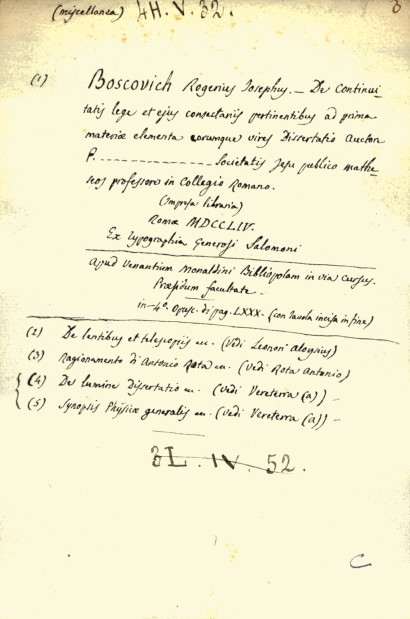 (miscellanea) 4H.V.32.
(1) Boscovich Rogerius Josephus. — De Continui-
tatis lege et ejus consectariis pertinentibus ad prima
materiæ elementa eorumque vires Dissertatio auctore
P. Societatis Jesu publico mathe-
seos professore in Collegio Romano.
(impresa libraria)
Romæ MDCCLIV.
Ex typographia Generosi Salomoni
Apud Venantium Monaldini Bibliopolam in via Cursus.
Præsidum facultate.
in-4º. Opusc. di pag. LXXX. (con tavola incisa in fine)
(2) De lentibus et telescopiis ec. (Vedi Leonori Aloysius)
(3) Ragionamento d'Antonio Rota ec. (Vedi Rota Antonio)
(4) De lumine Dissertatio ec. (Vedi Vereterra (a)) —
(5) Synopsis Physicæ generalis ec. (Vedi Vereterra (a)) —
3L.IV.52.
C